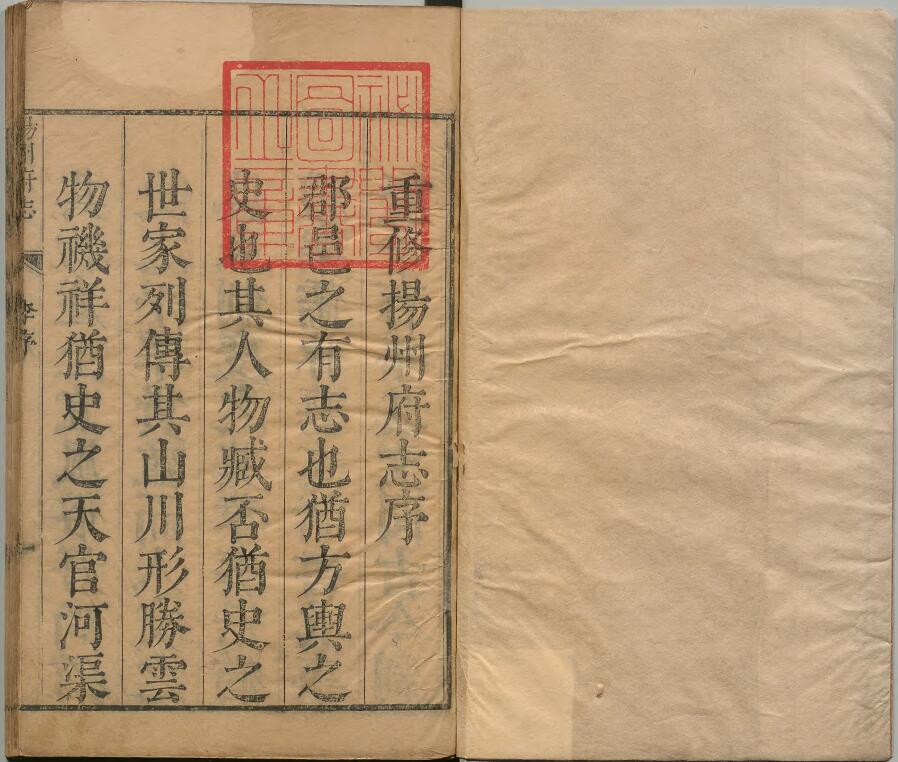 重修揚州府志序
郡邑之有志也猶方輿之
史也其人物臧否猶史之
世家列傳其山川形勝雲
物禨祥猶史之天官河渠
揚州府志
序